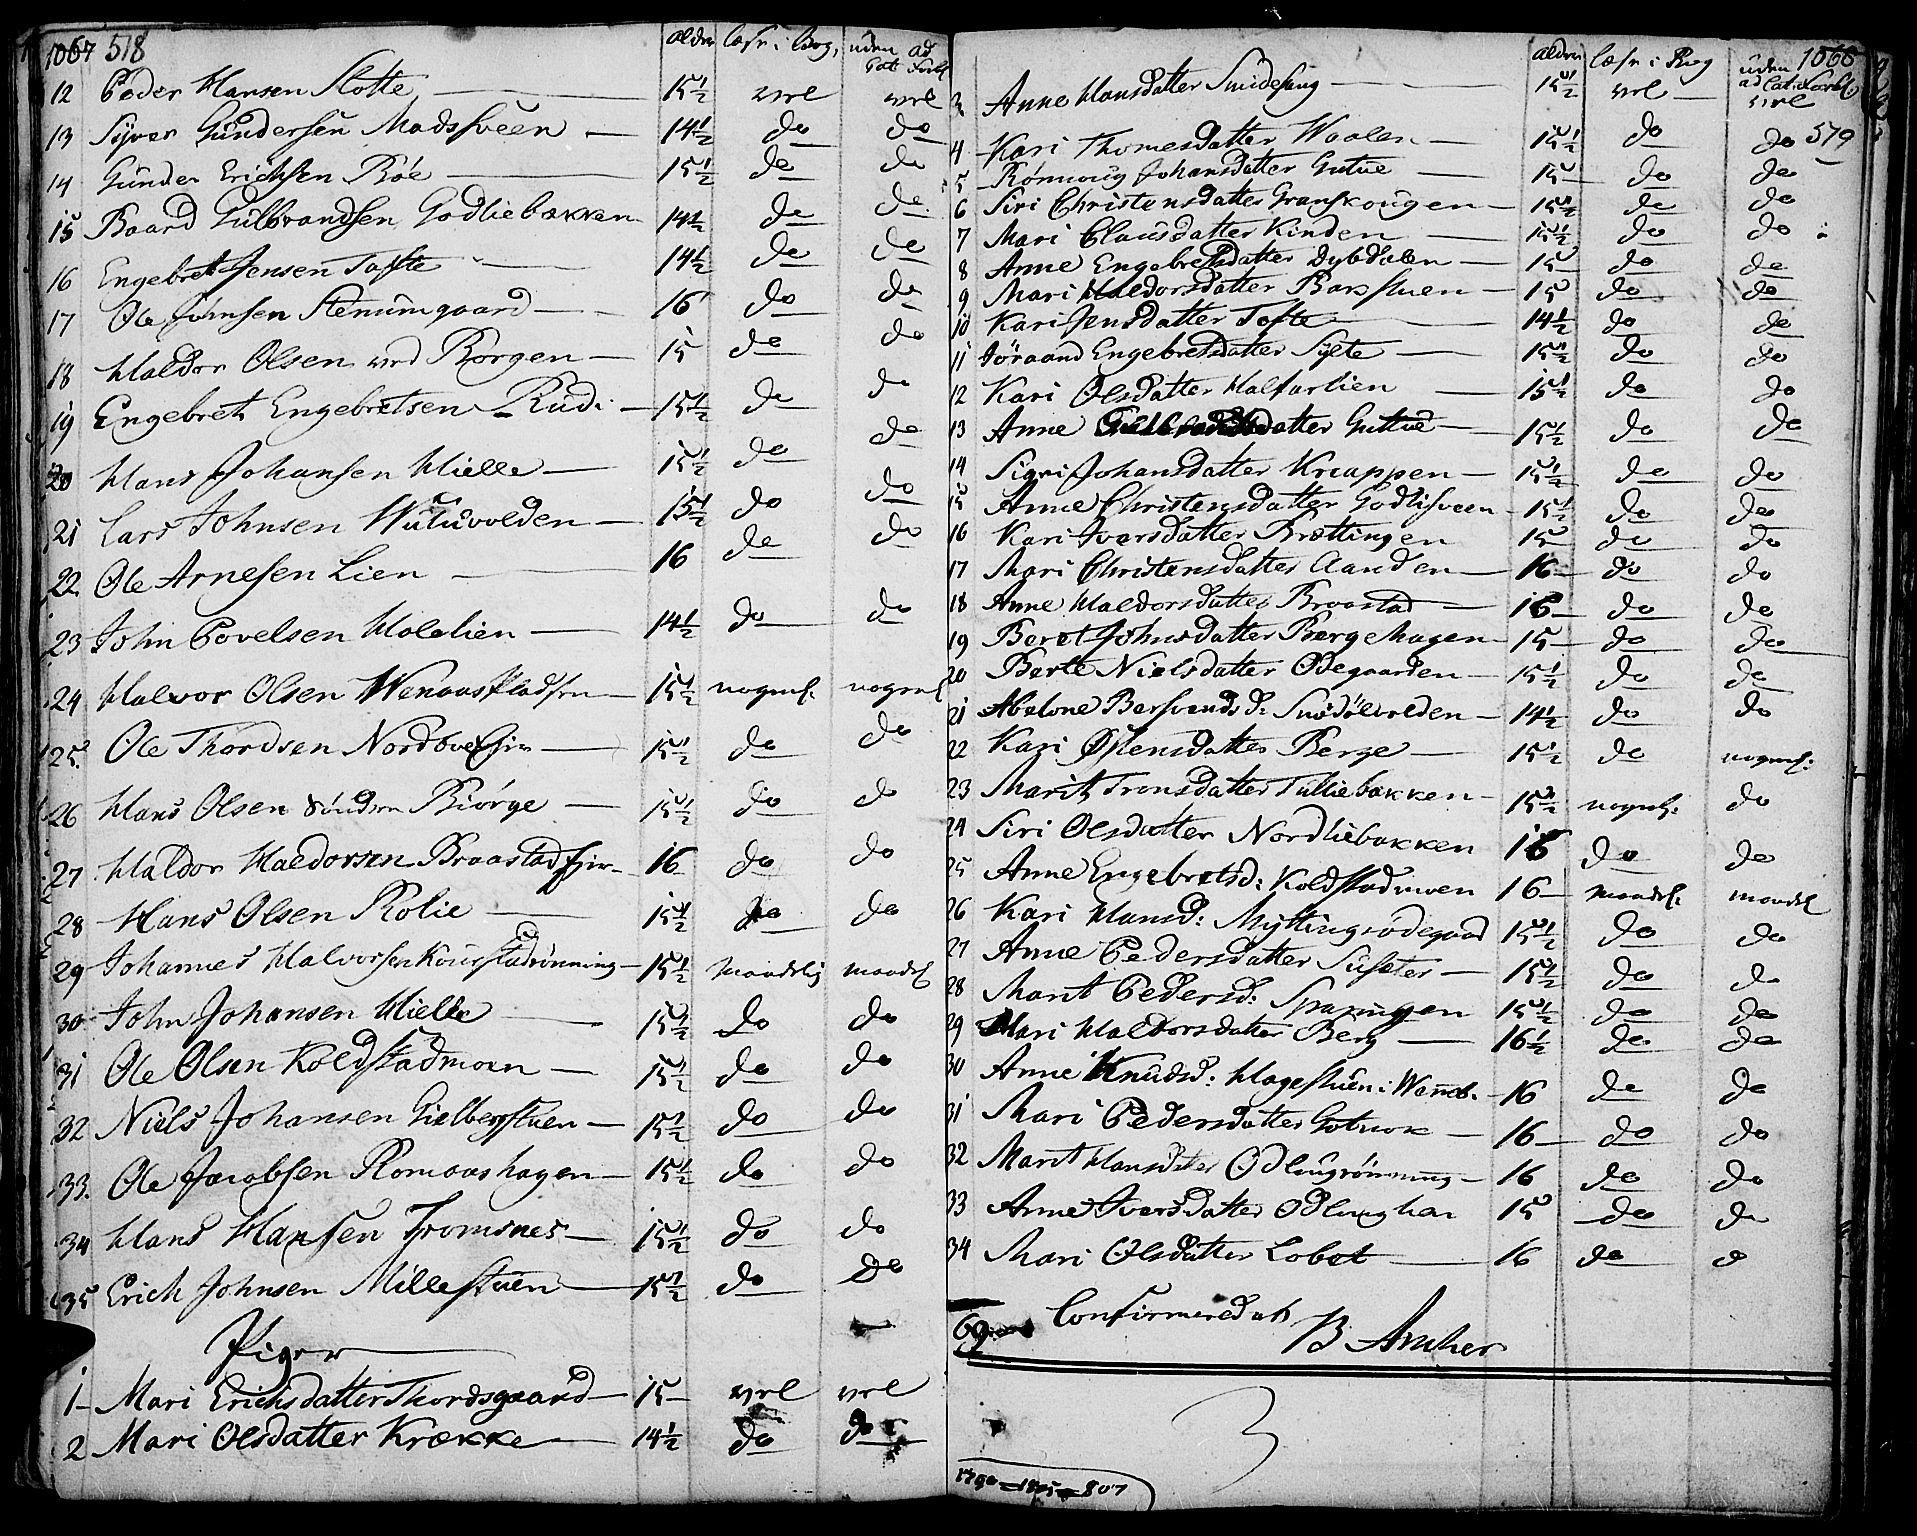 1067 518
alder læse i Bog, uden ad
Cat: Forkl
12 Peder Hansen Slotte 15 1/2 vel vel
13 Syver Gundersen Madssveen 14 1/2 do do
14 Gunder Erichsen Röe 15 1/2 do do
15 Baard Gulbrandsen Godliebakken 14 1/2 do do
16 Engebret Jensen Tofte 14 1/2 do do
17 Ole Jömsen Stenumgaard 16 do do
18 Haldor Olsen ved Borgen 15 do do
19 Engebret Engebretsen Rudi 15 1/2 do do
20 Hans Johansen Hielle 15 1/2 do do
21 Lars Johnsen Wuluvolden 15 1/2 do do
22 Ole Arnesen Lien 16 do do
23 John Povelsen Holelien 14 1/2 do do
24 Halvor Olsen Wenaas Pladsen 15 1/2 nogenl: nogenl
25. Ole Thordsen Nordbye 15 1/2 do do
26 Hans Olsen Sündre Biörge 15 1/2 do do
27 Haldor Haldorsen Braastad 16 do do
28 Hans Olsen Rolie 15 1/2 do do
29 Johannes Halvorsen Koustadrönning 15 1/2 maadelig maadel
30 John Johansen Hielle 15 1/2 do do
31 Ole Olsen Koldstadmoen 15 1/2 do do
32 Niels Johansen Gielbergstuen 15 1/2 do do
33. Ole Jacobsen Romaashagen 15 1/2 do do
34 Hans Hansen Tromsnes 15 1/2 do do
35 Erich Johnsen Millestuen 15 1/2 do do
Piger
1 Mari Erichsdatter Thordsgaard 15 vel vel
2 Mari Olsdatter Krække 14 1/2 do do
alder læse i Bog uden 1068
ad Cat: Forkl.
3 Anne Hansdatter Smidesang 15 1/2 vel vel
579
4 Kari Thomesdatter Waalen 15 1/2 do do
5 Rönnoug Johansdatter Gutue 15 do do
6 Siri Christensdatter Granskougen 15 1/2 do do
7 Mari Clausdatter Kinden 15 1/2 do do
8 Anne Engebretsdatter Dybdalen 15 do do
9 Mari Haldorsdatter Bakstuen 15 do do
10 Kari Jensdatter Tofte 14 1/2 do do
11 Jöraand Engebretsdatter Sylte 15 1/2 do do
12 Kari Olsdatter Halfarlien 15 1/2 do do
13 Anne datter Guttue 15 1/2 do do
14 Sigri Johansdatter Knappen 15 1/2 do do
15 Anne Christensdatter Godlisveen 15 1/2 do do
16 Kari Iversdatter Brettingen 15 do do
17 Mari Christensdatter Aanden 16 do do
18 Anne Haldorsdatter Braastad 16 do do
19 Beret Johnsdatter Bergehagen 15 do do
20 Berte Nielsdatter Ödegaarden 15 1/2 do do
21 Abelone Bersvends d: Snödölvolden 14 1/2 do do
22 Kari Östensdatter Berge 15 1/2 do nogenl:
23 Marit Tronsdatter Tulliebakken 15 1/2 nogenl: do
24 Siri Olsdatter Nordliebakken 16 do do
25 Anne Engebretsd: Koldstadmoen 16 maadel: maadel
26 Kari Hansd: Myttingsödegaard 15 1/2 do do
27 Anne Pedersdatter Sulseter 15 1/2 do do
28 Marit Pedersd: Sparingen 15 1/2 do do
29 Mari Haldorsdatter Berg 16 1/2 do do
30 Anne Knudsd: Hagestuen i Weneb. 16 do do
31 Mari Pedersdatter 16 do do
32 Marit Hansdatter Odlougrönning 16 do do
33 Anne Iversdatter Odloug 15 do do
34 Mari Olsdatter Lobet 16 do do
69 Confirmered at
B Ancher